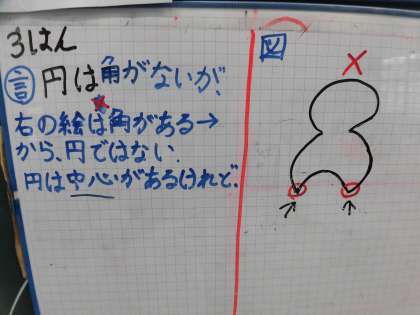 3はん
言 円は角がないが、
右の絵は角がある→
から、円ではない。
円は中心があるけれど、
図